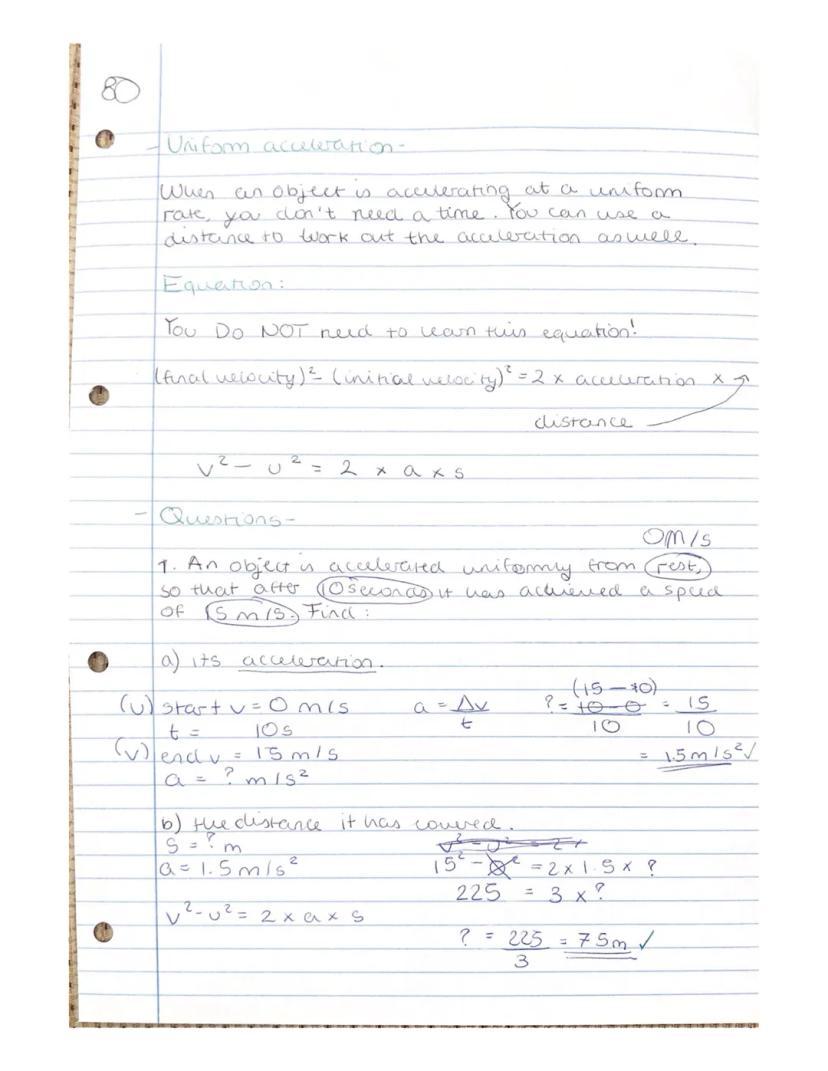 80
- Uniform acceleration -
When an object is accelerating at a uniform
rate, you don't need a time. You can use a
distance to work out the acceleration aswell.
Equation:
You DO NOT need to learn this equation!
(final velocity)² - (initial velocity)² = 2 x acceleration x
distance
v² - u² = 2 x a x s
- Questions -
0m/s
1. An object is accelerated uniformly from rest,
so that after 10 seconds it has achieved a speed
of 15 m/s. Find:
a) its acceleration.
(u) start v = 0 m/s a = Δv / t ? = (15 - 0) / 10 = 15 / 10
t = 10s
(v) end v = 15 m/s = 1.5 m/s² ✓
a = ? m/s²
b) the distance it has covered.
s = ? m v² - u² = 2 x
a = 1.5 m/s² 15² - 0² = 2 x 1.5 x ?
225 = 3 x ?
v² - u² = 2 x a x s
? = 225 / 3 = 75m ✓